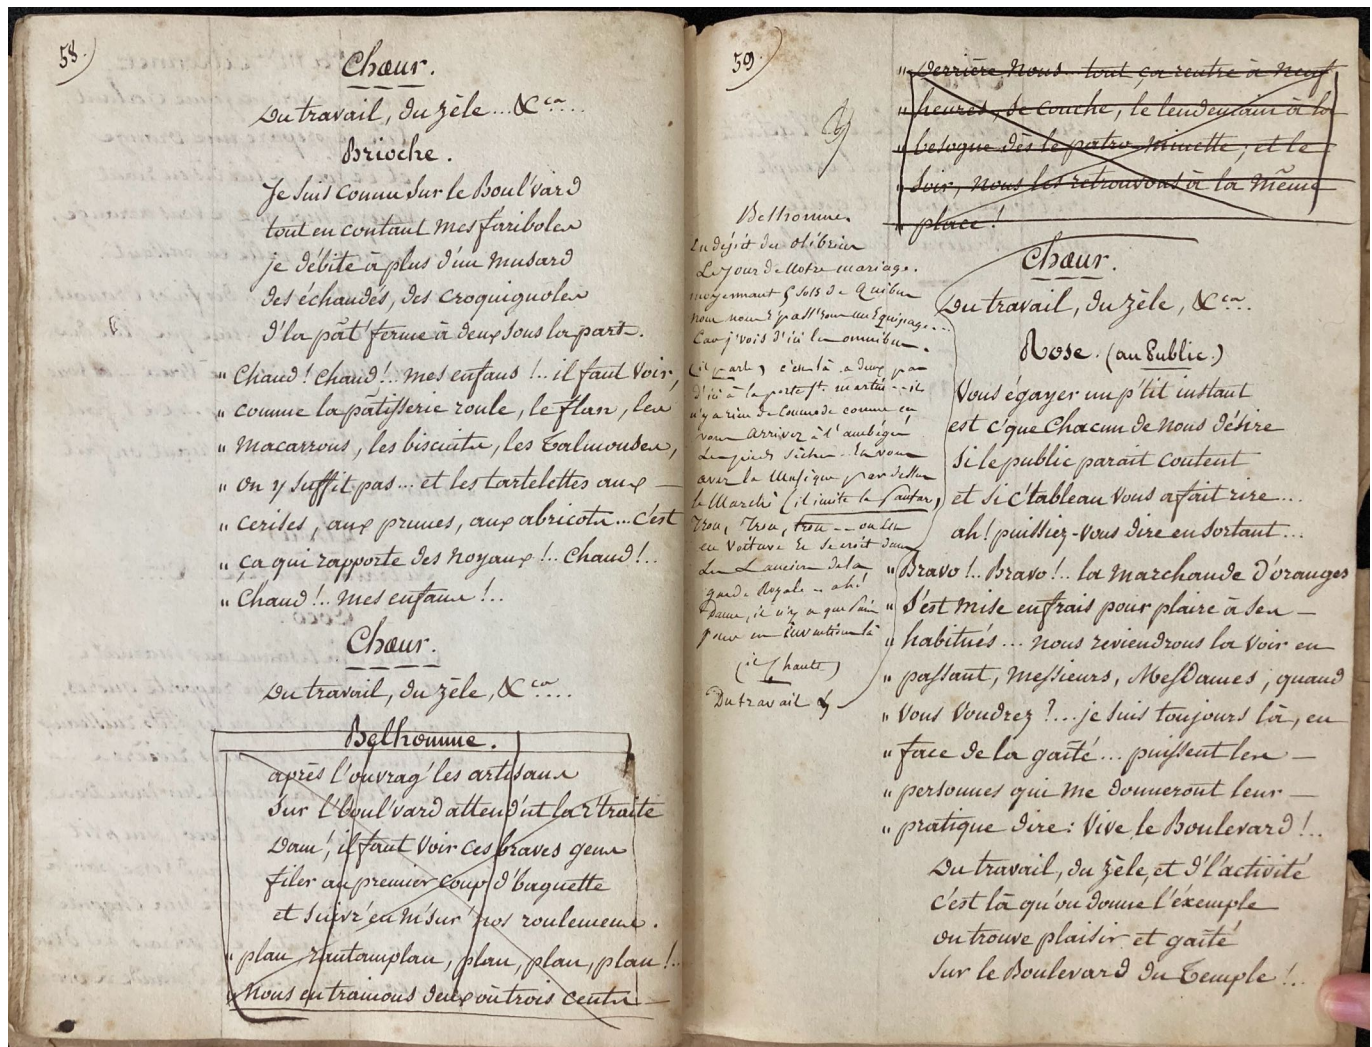 58.
Chœur.
Du travail, du zèle... &ca...
Brioche.
Je suis connu sur le Boul'vard
tout en contant mes fariboles
je débite à plus d'un musard
des échaudés, des croquignoles
d'la pât' ferme à deux sous la part.
" Chaud! Chaud!.. mes enfans!.. il faut voir,
" comme la pâtisserie roule, le flan, les
" macarrons, les biscuits, les Talmouses,
" on y suffit pas... et les tartelettes aux —
" cerises, aux prunes, aux abricots... c'est
" ça qui rapporte des noyaux!.. Chaud!..
" Chaud!.. mes enfans!..
Chœur.
Du travail, du zèle, &ca...
Belhomme.
après l'ouvrag' les artisans
sur l'boul'vard attend'nt la r'traite
Dam', il faut voir ces braves gens
filer au premier coup d'baguette
et suivr' en m'sur' nos roulemens.
" plan rantamplan, plan, plan, plan!..
" Nous entrainons deux où trois cents —
59.
" Derrière nous... tout ça rentre à neuf
" heures, se couche, le lendemain à la
" besogne dès le patro-minette, et le
" soir, nous les retrouvons à la même
" place!
Belhomme.
En dépit des olibrius
Le jour de notre mariage.
moyennant 6 sols de Quibus
nous nous épass'rons un Equipage...
Car j'vois d'ici les omnibus.
(il parle) c'est là a deux pas
d'ici à la porte St. martin... il
n'y a rien de commode comme ça
vous arrivez à l'
Les pieds séchés...
avec la Musique par dessus
le Marché (il imite la fanfare)
Trou, Trou, trou...
en voiture Et se croit dans
Les Lanciers de la
garde Royale... ah!
Dame, il n'y a que Paris
pour un invention là
(il Chante)
Du travail &
Chœur.
Du travail, du zèle, &ca...
Rose. (au Public.)
Vous égayer un p'tit instant
est c'que Chacun de nous désire
si le public parait content
et si c'tableau vous a fait rire....
ah! puissiez-vous dire en sortant...
" Bravo!.. Bravo!.. la marchande d'oranges
" s'est mise en frais pour plaire à ses —
" habitués... nous reviendrons la voir en
" passant, Messieurs, MesDames, quand
" vous voudrez?... je suis toujours là, en
" face de la gaîté... puissent les —
" personnes qui me donneront leur —
" pratique dire: Vive le Boulevard!..
Du travail, du zèle, et d'l'activité
c'est là qu'on donne l'éxemple
on trouve plaisir et gaîté
sur le Boulevard du Temple!..